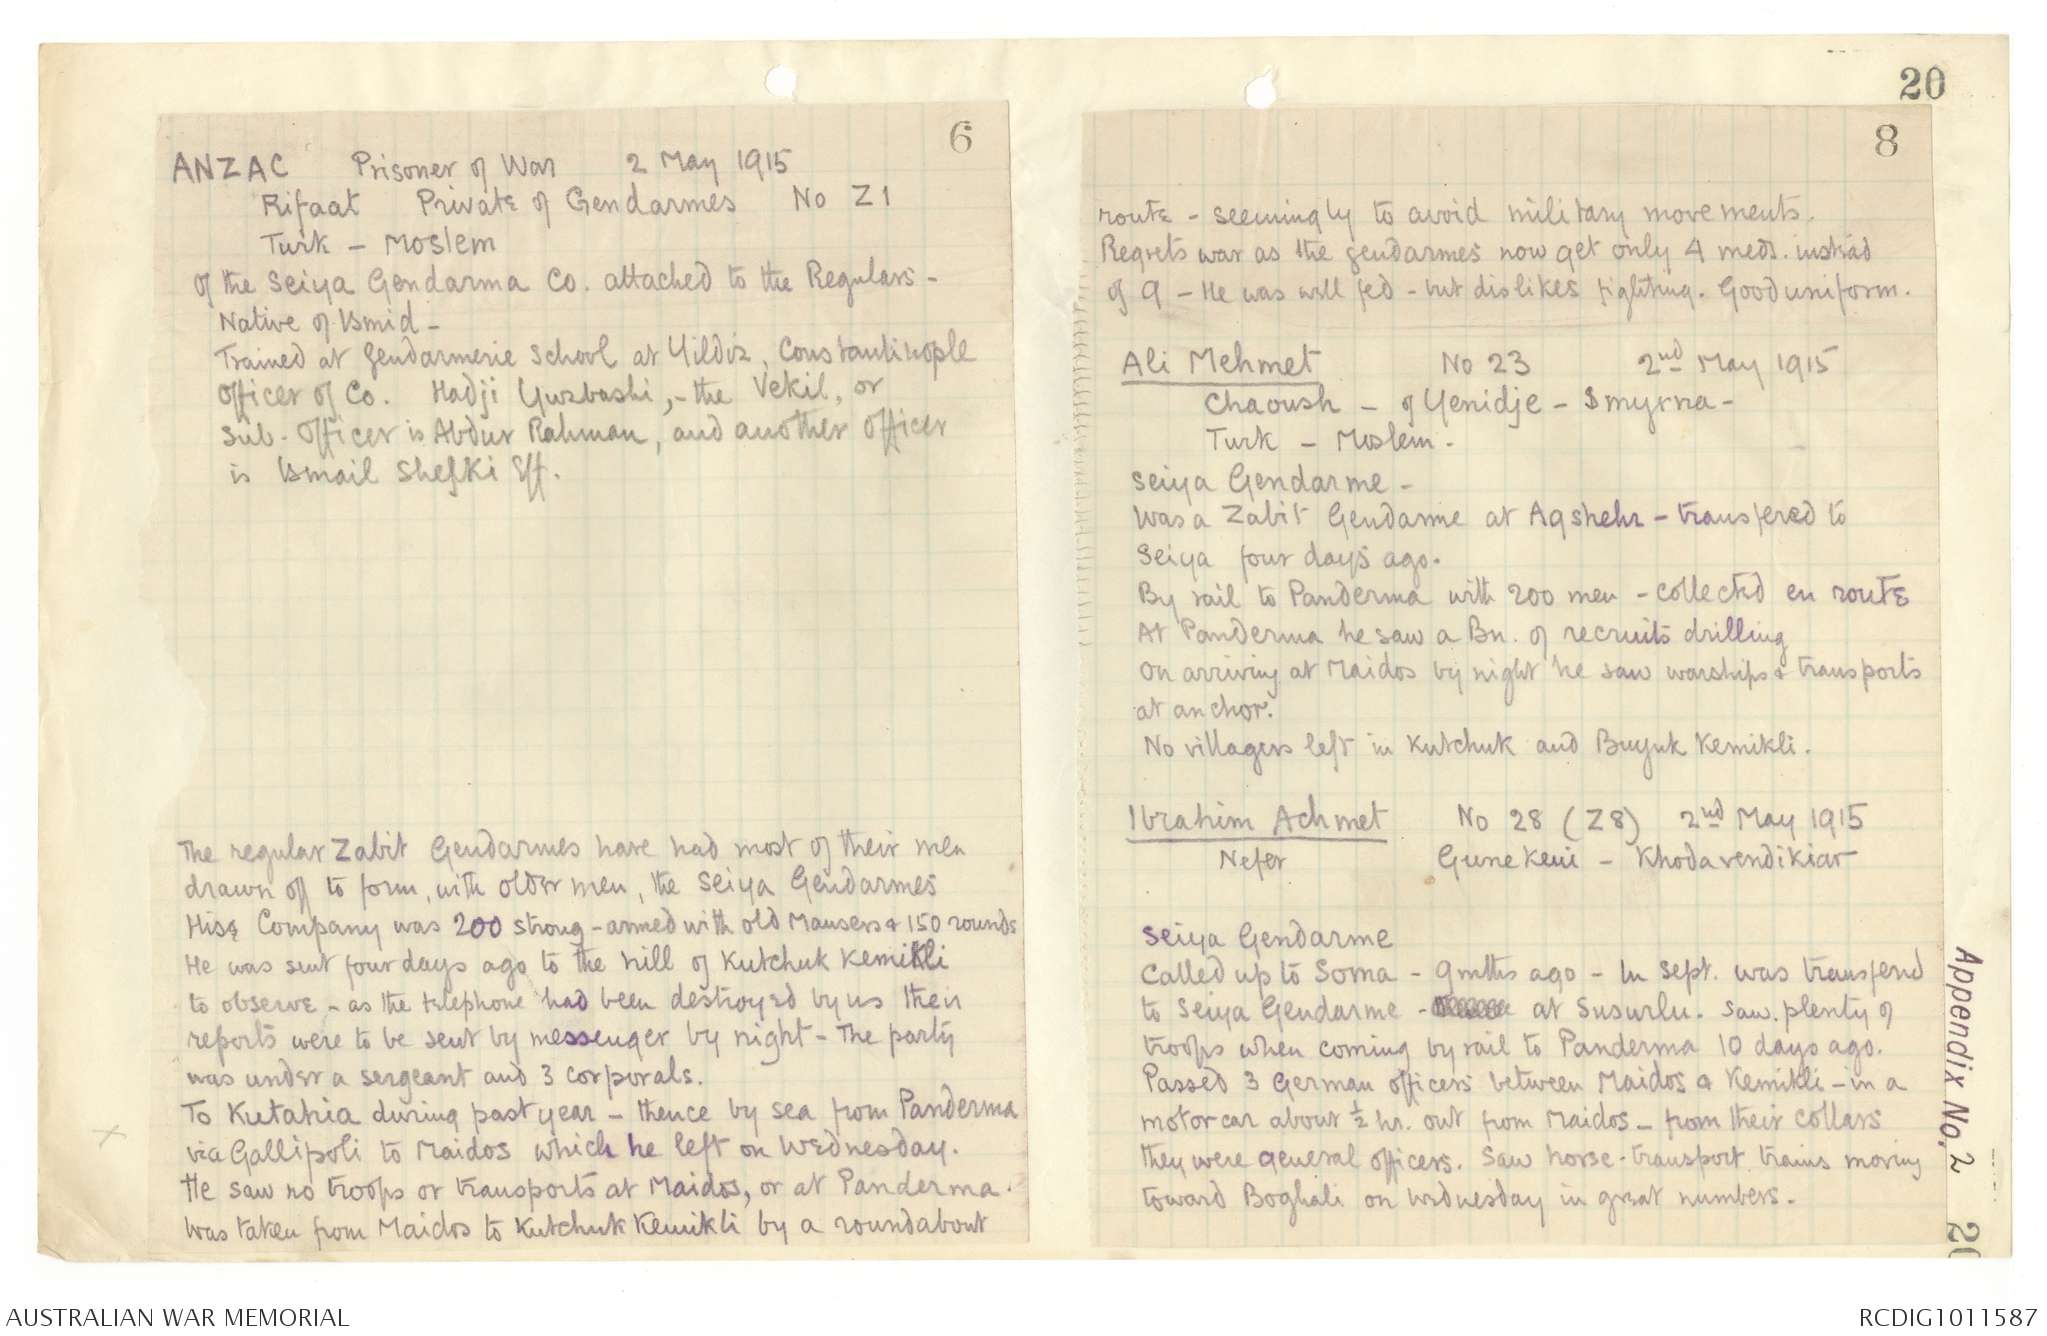 20
6
ANZAC Prisoner of War 2 May 1915
Rifaat Private of Gendarmes No Z1
Turk - Moslem
of the Seiya Gendarma Co. attached to the Regulars -
Native of Ismid -
Trained at Gendarmerie School at Yildiz, Constantinople
Officer of Co. Hadji Yuzbashi, - the Vekil, or
Sub-Officer is Abdur Rahman, and another officer
is Ismail Shefki Eff.
The regular Zabit Gendarmes have had most of their men
drawn off to form, with older men, the Seiya Gendarmes
His Company was 200 strong - armed with old Mausers & 150 rounds
He was sent four days ago to the hill of Kutchuk Kemikli
to observe - as the telephone had been destroyed by us their
reports were to be sent by messenger by night - The party
was under a sergeant and 3 corporals.
To Kutahia during past year - thence by sea from Panderma
via Gallipoli to Maidos which he left on Wednesday.
He saw no troops or transports at Maidos, or at Panderma.
Was taken from Maidos to Kutchuk Kemikli by a roundabout
8
route - seemingly to avoid military movements.
Regrets war as the gendarmes now get only 4 meds. instead
of 9 - He was well fed - but dislikes fighting. Good uniform.
Ali Mehmet No 23 2nd May 1915
Chaoush - of Yenidje - Smyrna -
Turk - Moslem -
Seiya Gendarme -
Was a Zabit Gendarme at Aqshehr - transfered to
Seiya four days ago.
By rail to Panderma with 200 men - collected en route
At Panderma he saw a Bn. of recruits drilling
On arriving at Maidos by night he saw warships & transports
at anchor.
No villagers left in Kutchuk and Buyuk Kemikli.
Ibrahim Achmet No 28 (Z8) 2nd May 1915
Nefer Gune Keui - Khodavendikiar
Seiya Gendarme
Called up to Soma - 9 mths ago - In Sept. was transfend
to Seiya Gendarme - at Susurlu. Saw plenty of
troops when coming by rail to Panderma 10 days ago.
Passed 3 German officers between Maidos & Kemikli - in a
motor car about ½ hr. out from Maidos - from their collars
they were general officers. Saw horse-transport trains moving
toward Boghali on Wednesday in great numbers.
Appendix No. 2
20
AUSTRALIAN WAR MEMORIAL
RCDIG1011587